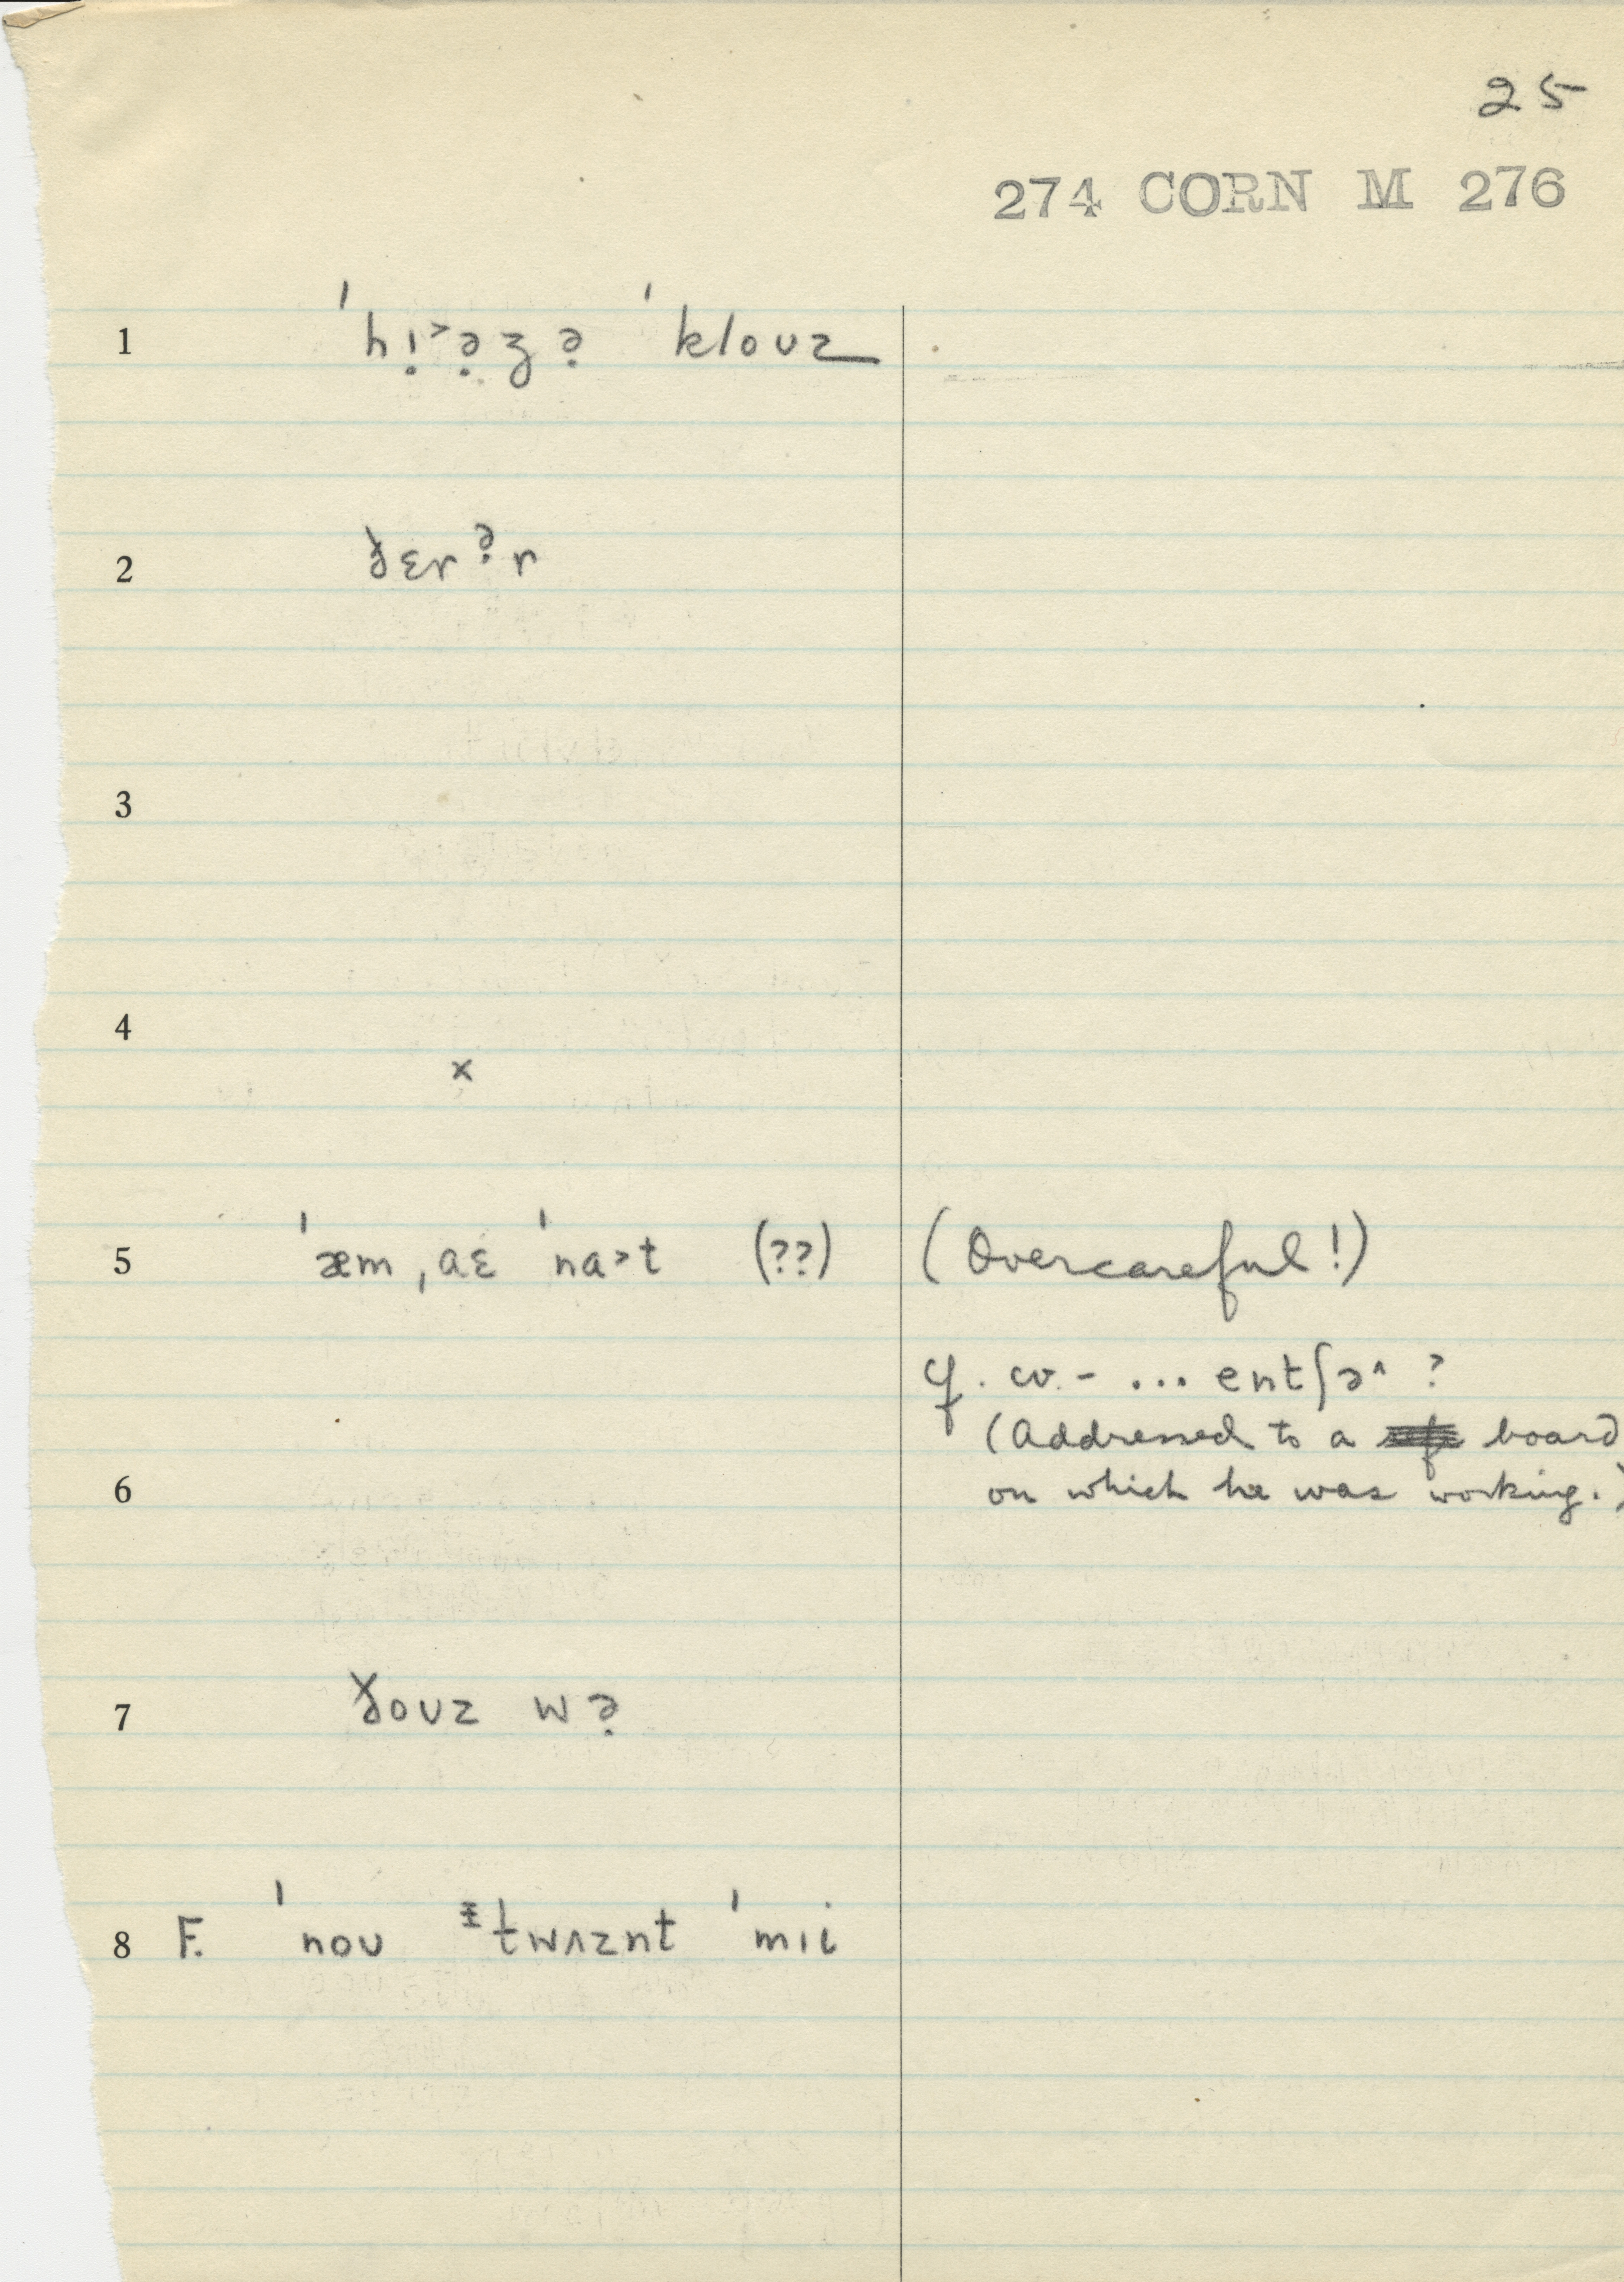 25
274 CORN M 276
1 ˈhị˃ə̣ʒə̣ ˈkloʊz
2 ðɛrə̣r
3
4
x
5 ˈæm ˌaɛ ˈna˃t (??) (Overcareful!)
cf. cv. - ... entʃə˄ ?
(Addressed to a board
6 on which he was working.)
7 ðoʊz wə̣
8 F. ˈnoʊ ɨtwʌznt ˈmɪi